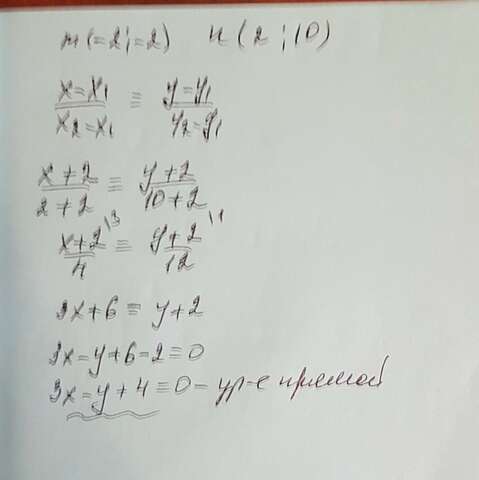 м(-2;-2) н(2;10)
x-x₁/x₂-x₁ = y-y₁/y₂-y₁
x+2/2+2 = y+2/10+2
x+2\3/4 = y+2\1/12
3x+6=y+2
3x-y+6-2=0
3x-y+4=0-ур-е прямой